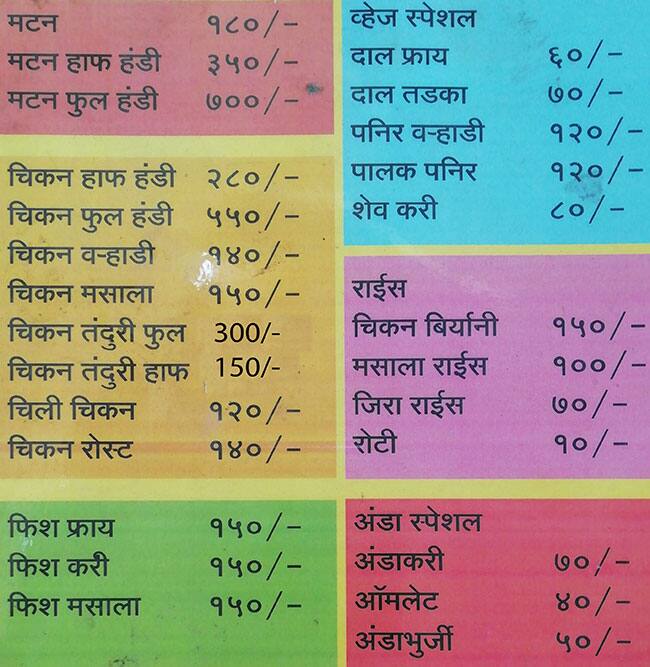 मटन १८०/-
मटन हाफ हंडी ३५०/-
मटन फुल हंडी ७००/-
चिकन हाफ हंडी २८०/-
चिकन फुल हंडी ५५०/-
चिकन वऱ्हाडी १४०/-
चिकन मसाला १५०/-
चिकन तंदुरी फुल 300/-
चिकन तंदुरी हाफ 150/-
चिली चिकन १२०/-
चिकन रोस्ट १४०/-
फिश फ्राय १५०/-
फिश करी १५०/-
फिश मसाला १५०/-
व्हेज स्पेशल
दाल फ्राय ६०/-
दाल तडका ७०/-
पनिर वऱ्हाडी १२०/-
पालक पनिर १२०/-
शेव करी ८०/-
राईस
चिकन बिर्यानी १५०/-
मसाला राईस १००/-
जिरा राईस ७०/-
रोटी १०/-
अंडा स्पेशल
अंडाकरी ७०/-
ऑमलेट ४०/-
अंडाभुर्जी ५०/-